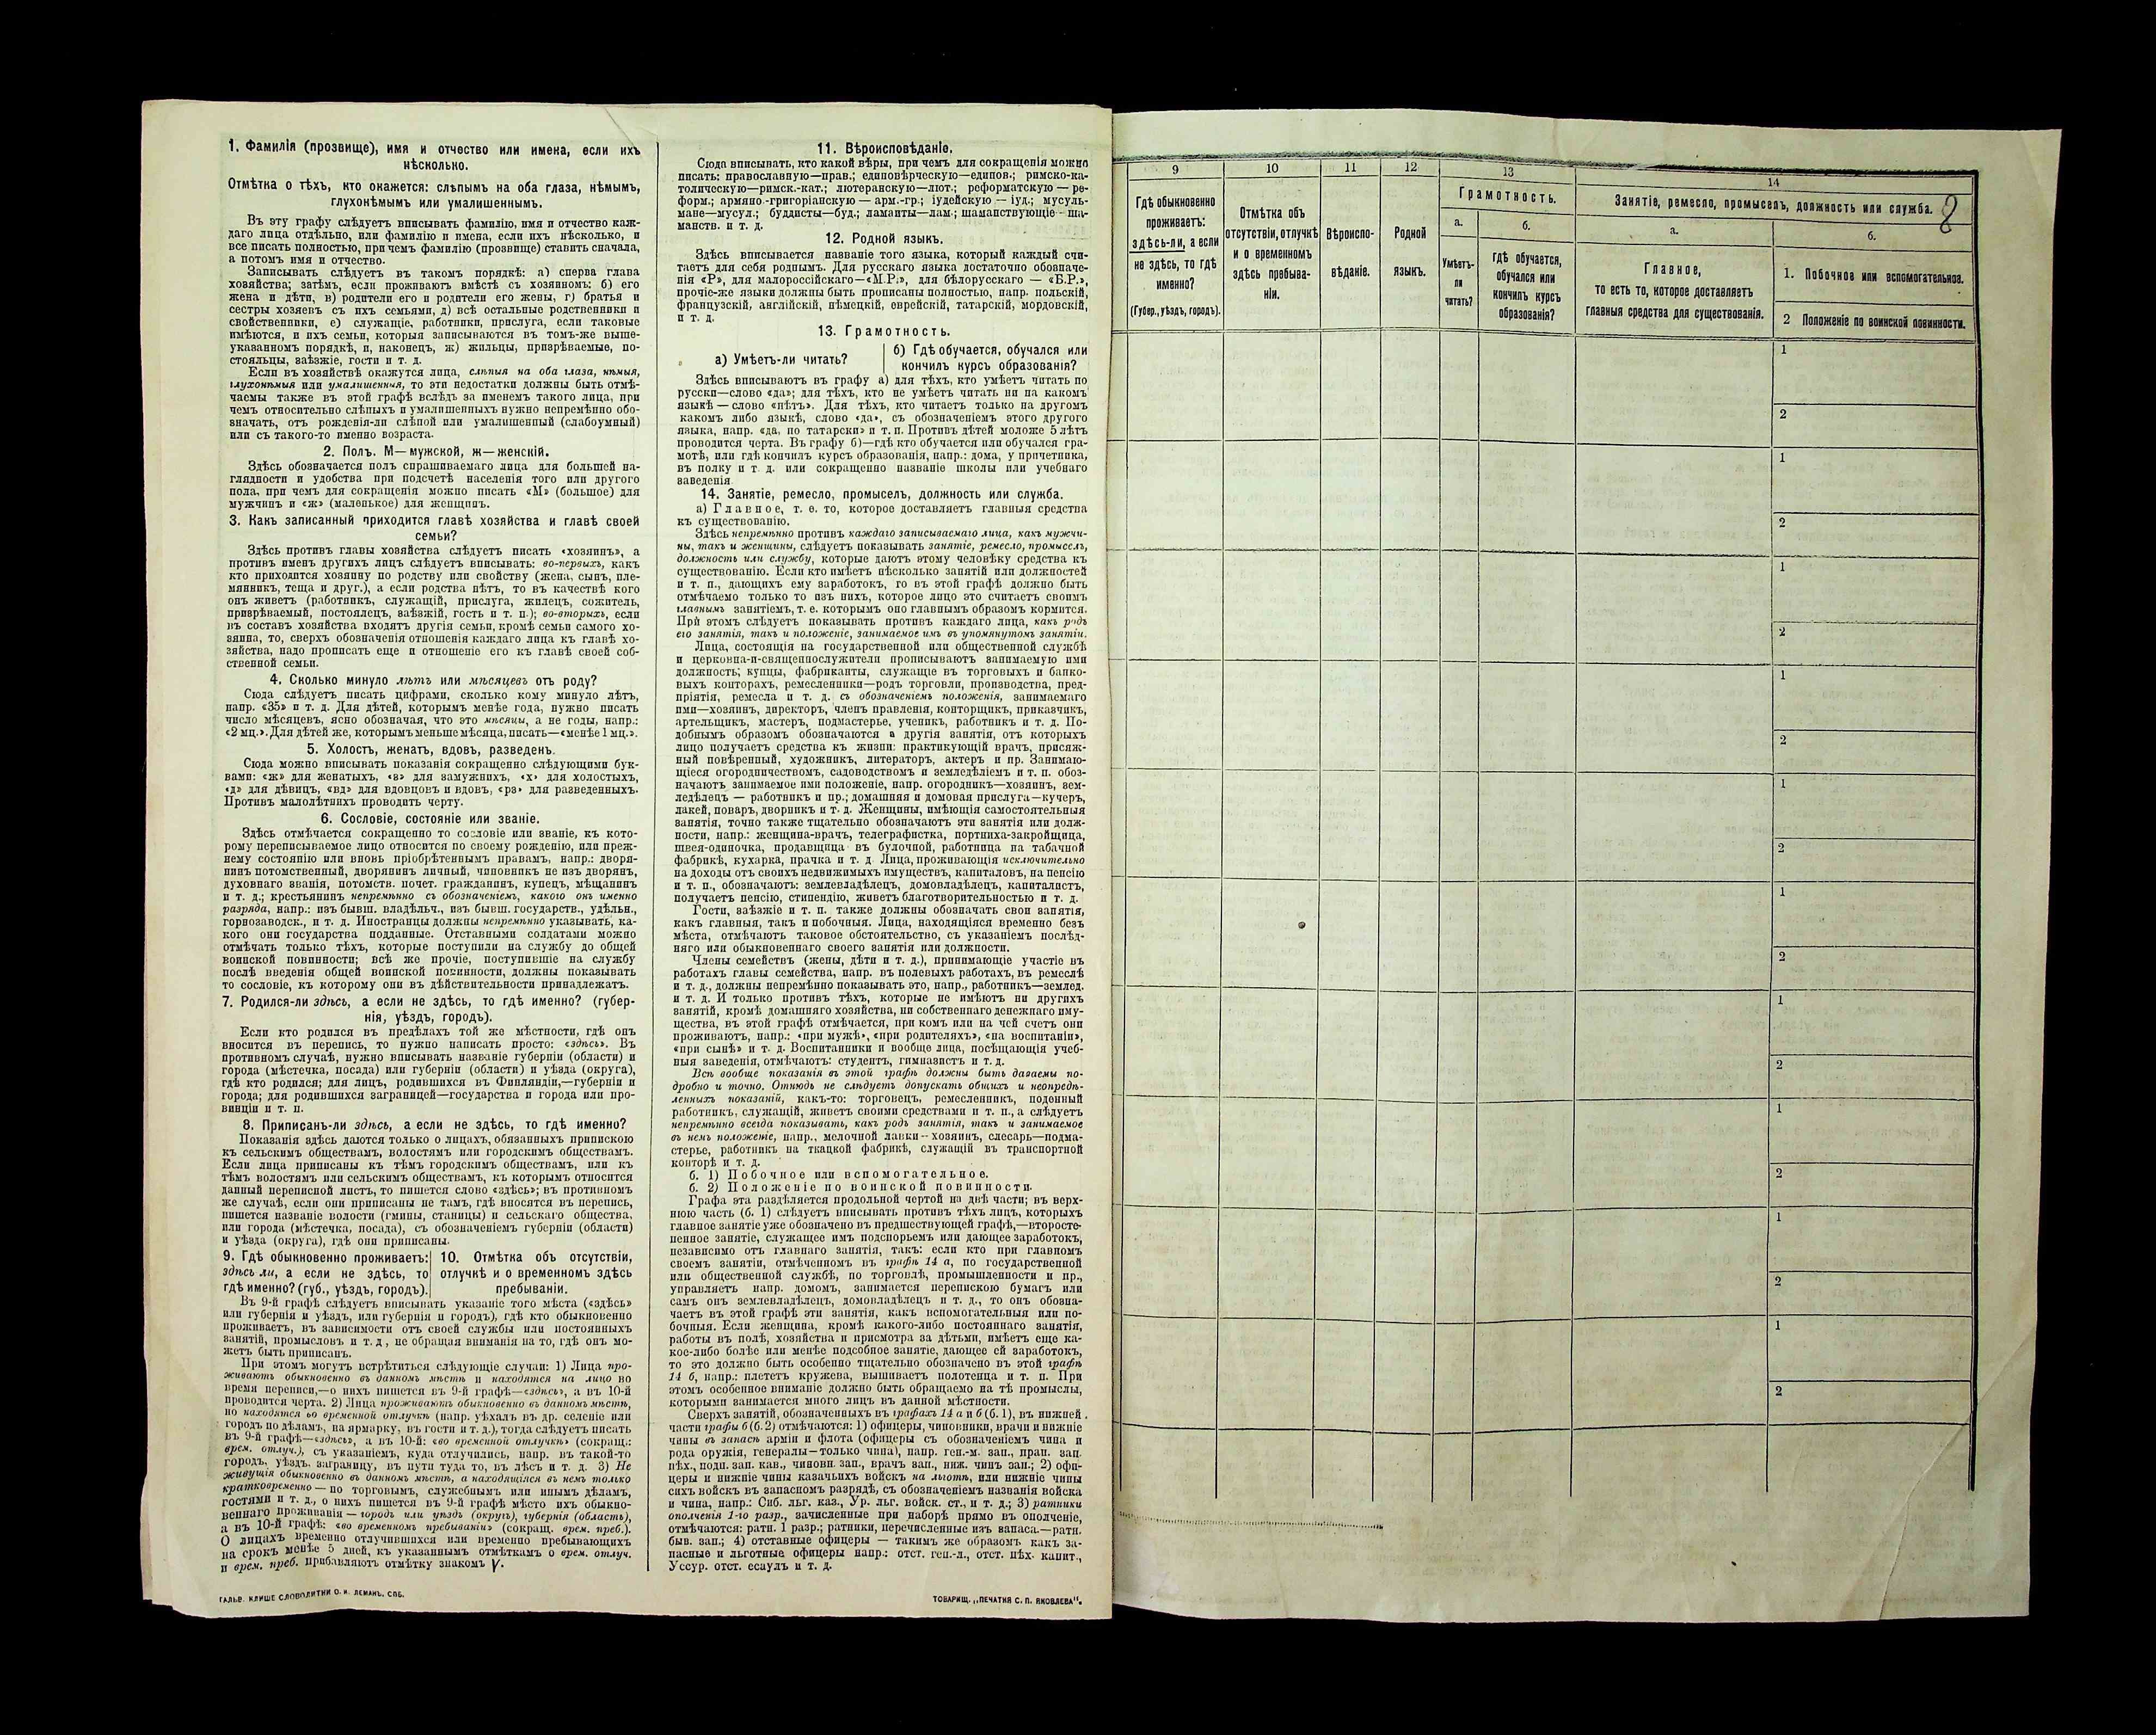 1. Фамилія (прозвище), имя и отчество или имена, если ихъ
нѣсколько.
Отмѣтка о тѣхъ, кто окажется: слѣпымъ на оба глаза, нѣмымъ,
глухонѣмымъ или умалишеннымъ.
Въ эту графу слѣдуетъ вписывать фамилію, имя и отчество каж-
даго лица отдѣльно, или фамилію и имена, если ихъ нѣсколько, и
все писать полностью, при чемъ фамилію (прозвище) ставить сначала,
а потомъ имя и отчество.
Записывать слѣдуетъ въ такомъ порядкѣ: а) сперва глава
хозяйства; затѣмъ, если проживаютъ вмѣстѣ съ хозяиномъ: б) его
жена и дѣти, в) родители его и родители его жены, г) братья и
сестры хозяевъ съ ихъ семьями, д) всѣ остальные родственники и
свойственники, е) служащіе, работники, прислуга, если таковые
имѣются, и ихъ семьи, которыя записываются въ томъ-же выше-
указанномъ порядкѣ, и, наконецъ, ж) жильцы, призрѣваемые, по-
стояльцы, заѣзжіе, гости и т. д.
Если въ хозяйствѣ окажутся лица, слѣпыя на оба глаза, нѣмыя,
глухонѣмыя или умалишенныя, то эти недостатки должны быть отмѣ-
чаемы также въ этой графѣ вслѣдъ за именемъ такого лица, при
чемъ относительно слѣпыхъ и умалишенныхъ нужно непремѣнно обо-
значать, отъ рожденія-ли слѣпой или умалишенный (слабоумный)
или съ такого-то именно возраста.
2. Полъ. М—мужской, ж—женскій.
Здѣсь обозначается полъ спрашиваемаго лица для большей на-
глядности и удобства при подсчетѣ населенія того или другого
пола, при чемъ для сокращенія можно писать «М» (большое) для
мужчинъ и «ж» (маленькое) для женщинъ.
3. Какъ записанный приходится главѣ хозяйства и главѣ своей
семьи?
Здѣсь противъ главы хозяйства слѣдуетъ писать «хозяинъ», а
противъ именъ другихъ лицъ слѣдуетъ вписывать: во-первыхъ, какъ
кто приходится хозяину по родству или свойству (жена, сынъ, пле-
мянникъ, теща и друг.), а если родства нѣтъ, то въ качествѣ кого
онъ живетъ (работникъ, служащій, прислуга, жилецъ, сожитель,
призрѣваемый, постоялецъ, заѣзжій, гость и т. п.); во-вторыхъ, если
въ составъ хозяйства входятъ другія семьи, кромѣ семьи самого хо-
зяина, то, сверхъ обозначенія отношенія каждаго лица къ главѣ хо-
зяйства, надо прописать еще и отношеніе его къ главѣ своей соб-
ственной семьи.
4. Сколько минуло лѣтъ или мѣсяцевъ отъ роду?
Сюда слѣдуетъ писать цифрами, сколько кому минуло лѣтъ,
напр. «35» и т. д. Для дѣтей, которымъ менѣе года, нужно писать
число мѣсяцевъ, ясно обозначая, что это мѣсяцы, а не годы, напр.:
«2 мц.». Для дѣтей же, которымъ меньше мѣсяца, писать—«менѣе 1 мц.».
5. Холостъ, женатъ, вдовъ, разведенъ.
Сюда можно вписывать показанія сокращенно слѣдующими бук-
вами: «ж» для женатыхъ, «з» для замужнихъ, «х» для холостыхъ,
«д» для дѣвицъ, «вд» для вдовцовъ и вдовъ, «рз» для разведенныхъ.
Противъ малолѣтнихъ проводить черту.
6. Сословіе, состояніе или званіе.
Здѣсь отмѣчается сокращенно то сословіе или званіе, къ кото-
рому переписываемое лицо относится по своему рожденію, или преж-
нему состоянію или вновь пріобрѣтеннымъ правамъ, напр.: дворя-
нинъ потомственный, дворянинъ личный, чиновникъ не изъ дворянъ,
духовнаго званія, потомств. почет. гражданинъ, купецъ, мѣщанинъ
и т. д.; крестьянинъ непремѣнно съ обозначеніемъ, какого онъ именно
разряда, напр.: изъ бывш. владѣльч., изъ бывш. государств., удѣльн.,
горнозаводск., и т. д. Иностранцы должны непремѣнно указывать, ка-
кого они государства подданные. Отставными солдатами можно
отмѣчать только тѣхъ, которые поступили на службу до общей
воинской повинности; всѣ же прочіе, поступившіе на службу
послѣ введенія общей воинской повинности, должны показывать
то сословіе, къ которому они въ дѣйствительности принадлежатъ.
7. Родился-ли здѣсь, а если не здѣсь, то гдѣ именно? (губер-
нія, уѣздъ, городъ).
Если кто родился въ предѣлахъ той же мѣстности, гдѣ онъ
вносится въ перепись, то нужно написать просто: «здѣсь». Въ
противномъ случаѣ, нужно вписывать названіе губерніи (области) и
города (мѣстечка, посада) или губерніи (области) и уѣзда (округа),
гдѣ кто родился; для лицъ, родившихся въ Финляндіи,—губерніи и
города; для родившихся заграницей—государства и города или про-
винціи и т. п.
8. Приписанъ-ли здѣсь, а если не здѣсь, то гдѣ именно?
Показанія здѣсь даются только о лицахъ, обязанныхъ припискою
къ сельскимъ обществамъ, волостямъ или городскимъ обществамъ.
Если лица приписаны къ тѣмъ городскимъ обществамъ, или къ
тѣмъ волостямъ или сельскимъ обществамъ, къ которымъ относится
данный переписной листъ, то пишется слово «здѣсь»; въ противномъ
же случаѣ, если они приписаны не тамъ, гдѣ вносятся въ перепись,
пишется названіе волости (гмины, станицы) и сельскаго общества,
или города (мѣстечка, посада), съ обозначеніемъ губерніи (области)
и уѣзда (округа), гдѣ они приписаны.
9. Гдѣ обыкновенно проживаетъ:
здѣсь ли, а если не здѣсь, то
гдѣ именно? (губ., уѣздъ, городъ).
10. Отмѣтка объ отсутствіи,
отлучкѣ и о временномъ здѣсь
пребываніи.
Въ 9-й графѣ слѣдуетъ вписывать указаніе того мѣста («здѣсь»
или губернія и уѣздъ, или губернія и городъ), гдѣ кто обыкновенно
проживаетъ, въ зависимости отъ своей службы или постоянныхъ
занятій, промысловъ и т. д., не обращая вниманія на то, гдѣ онъ мо-
жетъ быть приписанъ.
При этомъ могутъ встрѣтиться слѣдующіе случаи: 1) Лица про-
живаютъ обыкновенно въ данномъ мѣстѣ и находятся на лицо во
время переписи,—о нихъ пишется въ 9-й графѣ—«здѣсь», а въ 10-й
проводится черта. 2) Лица проживаютъ обыкновенно въ данномъ мѣстѣ,
но находятся во временной отлучкѣ (напр. уѣхалъ въ др. селеніе или
городъ по дѣламъ, на ярмарку, въ гости и т. д.), тогда слѣдуетъ писать
въ 9-й графѣ—«здѣсь», а въ 10-й: «во временной отлучкѣ» (сокращ.:
врем. отлуч.), съ указаніемъ, куда отлучились, напр. въ такой-то
городъ, уѣздъ, заграницу, въ пути туда то, въ лѣсъ и т. д. 3) Не
живущія обыкновенно въ данномъ мѣстѣ, а находящіяся въ немъ только
кратковременно — по торговымъ, служебнымъ или инымъ дѣламъ,
гостями и т. д., о нихъ пишется въ 9-й графѣ мѣсто ихъ обыкно-
веннаго проживанія — городъ или уѣздъ (округъ), губернія (область),
а въ 10-й графѣ: «во временномъ пребываніи» (сокращ. врем. преб.).
О лицахъ временно отлучившихся или временно пребывающихъ
на срокъ менѣе 5 дней, къ указаннымъ отмѣткамъ о врем. отлуч.
и врем. преб. прибавляютъ отмѣтку знакомъ V.
ГАЛЬВ. КЛИШЕ СЛОВОЛИТНИ О. И. ЛЕМАНЪ, СПБ.
11. Вѣроисповѣданіе.
Сюда вписывать, кто какой вѣры, при чемъ для сокращенія можно
писать: православную—прав.; единовѣрческую—единов.; римско-ка-
толическую—римск.-кат.; лютеранскую—лют.; реформатскую — ре-
форм.; армяно-григоріанскую — арм.-гр.; іудейскую — іуд.; мусуль-
мане—мусул.; буддисты—буд.; ламаиты—лам.; шаманствующіе — ша-
манств. и т. д.
12. Родной языкъ.
Здѣсь вписывается названіе того языка, который каждый счи-
таетъ для себя роднымъ. Для русскаго языка достаточно обозначе-
нія «Р», для малороссійскаго—«М.Р.», для бѣлорусскаго — «Б.Р.»,
прочіе-же языки должны быть прописаны полностью, напр. польскій,
французскій, англійскій, нѣмецкій, еврейскій, татарскій, мордовскій,
и т. д.
13. Грамотность.
а) Умѣетъ-ли читать?
б) Гдѣ обучается, обучался или
кончилъ курсъ образованія?
Здѣсь вписываютъ въ графу а) для тѣхъ, кто умѣетъ читать по
русски—слово «да»; для тѣхъ, кто не умѣетъ читать ни на какомъ
языкѣ — слово «нѣтъ». Для тѣхъ, кто читаетъ только на другомъ
какомъ либо языкѣ, слово «да», съ обозначеніемъ этого другого
языка, напр. «да, по татарски» и т. п. Противъ дѣтей моложе 5 лѣтъ
проводится черта. Въ графу б)—гдѣ кто обучается или обучался гра-
мотѣ, или гдѣ кончилъ курсъ образованія, напр.: дома, у причетника,
въ полку и т. д. или сокращенно названіе школы или учебнаго
заведенія
14. Занятіе, ремесло, промыселъ, должность или служба.
а) Главное, т. е. то, которое доставляетъ главныя средства
къ существованію.
Здѣсь непремѣнно противъ каждаго записываемаго лица, какъ мужчи-
ны, такъ и женщины, слѣдуетъ показывать занятіе, ремесло, промыселъ,
должность или службу, которые даютъ этому человѣку средства къ
существованію. Если кто имѣетъ нѣсколько занятій или должностей
и т. п., дающихъ ему заработокъ, то въ этой графѣ должно быть
отмѣчаемо только то изъ нихъ, которое лицо это считаетъ своимъ
главнымъ занятіемъ, т. е. которымъ оно главнымъ образомъ кормится.
При этомъ слѣдуетъ показывать противъ каждаго лица, какъ родъ
его занятія, такъ и положеніе, занимаемое имъ въ упомянутомъ занятіи.
Лица, состоящія на государственной или общественной службѣ
и церковно-и-священнослужители прописываютъ занимаемую ими
должность; купцы, фабриканты, служащіе въ торговыхъ и банко-
выхъ конторахъ, ремесленники—родъ торговли, производства, пред-
пріятія, ремесла и т. д. съ обозначеніемъ положенія, занимаемаго
ими—хозяинъ, директоръ, членъ правленія, конторщикъ, приказчикъ,
артельщикъ, мастеръ, подмастерье, ученикъ, работникъ и т. д. По-
добнымъ образомъ обозначаются и другія занятія, отъ которыхъ
лицо получаетъ средства къ жизни: практикующій врачъ, присяж-
ный повѣренный, художникъ, литераторъ, актеръ и пр. Занимаю-
щіеся огородничествомъ, садоводствомъ и земледѣліемъ и т. п. обоз-
начаютъ занимаемое ими положеніе, напр. огородникъ—хозяинъ, зем-
ледѣлецъ — работникъ и пр.; домашняя и домовая прислуга—кучеръ,
лакей, поваръ, дворникъ и т. д. Женщины, имѣющія самостоятельныя
занятія, точно также тщательно обозначаютъ эти занятія или долж-
ности, напр.: женщина-врачъ, телеграфистка, портниха-закройщица,
швея-одиночка, продавщица въ булочной, работница на табачной
фабрикѣ, кухарка, прачка и т. д. Лица, проживающія исключительно
на доходы отъ своихъ недвижимыхъ имуществъ, капиталовъ, на пенсію
и т. п., обозначаютъ: землевладѣлецъ, домовладѣлецъ, капиталистъ,
получаетъ пенсію, стипендію, живетъ благотворительностью и т. д.
Гости, заѣзжіе и т. п. также должны обозначать свои занятія,
какъ главныя, такъ и побочныя. Лица, находящіяся временно безъ
мѣста, отмѣчаютъ таковое обстоятельство, съ указаніемъ послѣд-
няго или обыкновеннаго своего занятія или должности.
Члены семействъ (жены, дѣти и т. д.), принимающіе участіе въ
работахъ главы семейства, напр. въ полевыхъ работахъ, въ ремеслѣ
и т. д., должны непремѣнно показывать это, напр., работникъ—землед.
и т. д. И только противъ тѣхъ, которые не имѣютъ ни другихъ
занятій, кромѣ домашняго хозяйства, ни собственнаго денежнаго иму-
щества, въ этой графѣ отмѣчается, при комъ или на чей счетъ они
проживаютъ, напр.: «при мужѣ», «при родителяхъ», «на воспитаніи»,
«при сынѣ» и т. д. Воспитанники и вообще лица, посѣщающія учеб-
ныя заведенія, отмѣчаютъ: студентъ, гимназистъ и т. д.
Всѣ вообще показанія въ этой графѣ должны быть даваемы по-
дробно и точно. Отнюдь не слѣдуетъ допускать общихъ и неопредѣ-
ленныхъ показаній, какъ-то: торговецъ, ремесленникъ, поденный
работникъ, служащій, живетъ своими средствами и т. п., а слѣдуетъ
непремѣнно всегда показывать, какъ родъ занятія, такъ и занимаемое
въ немъ положеніе, напр., мелочной лавки—хозяинъ, слесарь—подма-
стерье, работникъ на ткацкой фабрикѣ, служащій въ транспортной
конторѣ и т. д.
б. 1) Побочное или вспомогательное.
б. 2) Положеніе по воинской повинности.
Графа эта раздѣляется продольной чертой на двѣ части; въ верх-
нюю часть (б. 1) слѣдуетъ вписывать противъ тѣхъ лицъ, которыхъ
главное занятіе уже обозначено въ предшествующей графѣ,—второсте-
пенное занятіе, служащее имъ подспорьемъ или дающее заработокъ,
независимо отъ главнаго занятія, такъ: если кто при главномъ
своемъ занятіи, отмѣченномъ въ графѣ 14 а, по государственной
или общественной службѣ, по торговлѣ, промышленности и пр.,
управляетъ напр. домомъ, занимается перепискою бумагъ или
самъ онъ землевладѣлецъ, домовладѣлецъ и т. д., то онъ обозна-
чаетъ въ этой графѣ эти занятія, какъ вспомогательныя или по-
бочныя. Если женщина, кромѣ какого-либо постояннаго занятія,
работы въ полѣ, хозяйства и присмотра за дѣтьми, имѣетъ еще ка-
кое-либо болѣе или менѣе подсобное занятіе, дающее ей заработокъ,
то это должно быть особенно тщательно обозначено въ этой графѣ
14 б, напр.: плететъ кружева, вышиваетъ полотенца и т. п. При
этомъ особенное вниманіе должно быть обращаемо на тѣ промыслы,
которыми занимается много лицъ въ данной мѣстности.
Сверхъ занятій, обозначенныхъ въ графахъ 14 а и б (б. 1), въ нижней
части графы б (б. 2) отмѣчаются: 1) офицеры, чиновники, врачи и нижніе
чины въ запасѣ арміи и флота (офицеры съ обозначеніемъ чина и
рода оружія, генералы—только чина), напр. ген.-м. зап., прап. зап.
пѣх., подп. зап. кав., чиновн. зап., врачъ зап., ниж. чинъ зап.; 2) офи-
церы и нижніе чины казачьихъ войскъ на льготѣ, или нижніе чины
сихъ войскъ въ запасномъ разрядѣ, съ обозначеніемъ названія войска
и чина, напр.: Сиб. льг. каз., Ур. льг. войск. ст., и т. д.; 3) ратники
ополченія 1-го разр., зачисленные при наборѣ прямо въ ополченіе,
отмѣчаются: ратн. 1 разр.; ратники, перечисленные изъ запаса.—ратн.
быв. зап.; 4) отставные офицеры — такимъ же образомъ какъ за-
пасные и льготные офицеры напр.: отст. ген.-л., отст. пѣх. капит.,
Уссур. отст. есаулъ и т. д.
ТОВАРИЩ. „ПЕЧАТНЯ С. П. ЯКОВЛЕВА".
9
Гдѣ обыкновенно
проживаетъ:
здѣсь-ли, а если
не здѣсь, то гдѣ
именно?
(Губер., уѣздъ, городъ).
10
Отмѣтка объ
отсутствіи, отлучкѣ
и о временномъ
здѣсь пребыва-
ніи.
11
Вѣроиспо-
вѣданіе.
12
Родной
языкъ.
13
Грамотность.
а.
Умѣетъ-
ли
читать?
б.
гдѣ обучается,
обучался или
кончилъ курсъ
образованія?
14
Занятіе, ремесло, промыселъ, должность или служба.
8
а.
Главное,
то есть то, которое доставляетъ
главныя средства для существованія.
б.
1. Побочное или вспомогательное.
2 Положеніе по воинской повинности.
1
2
1
2
1
2
1
2
1
2
1
2
1
2
1
2
1
2
1
2